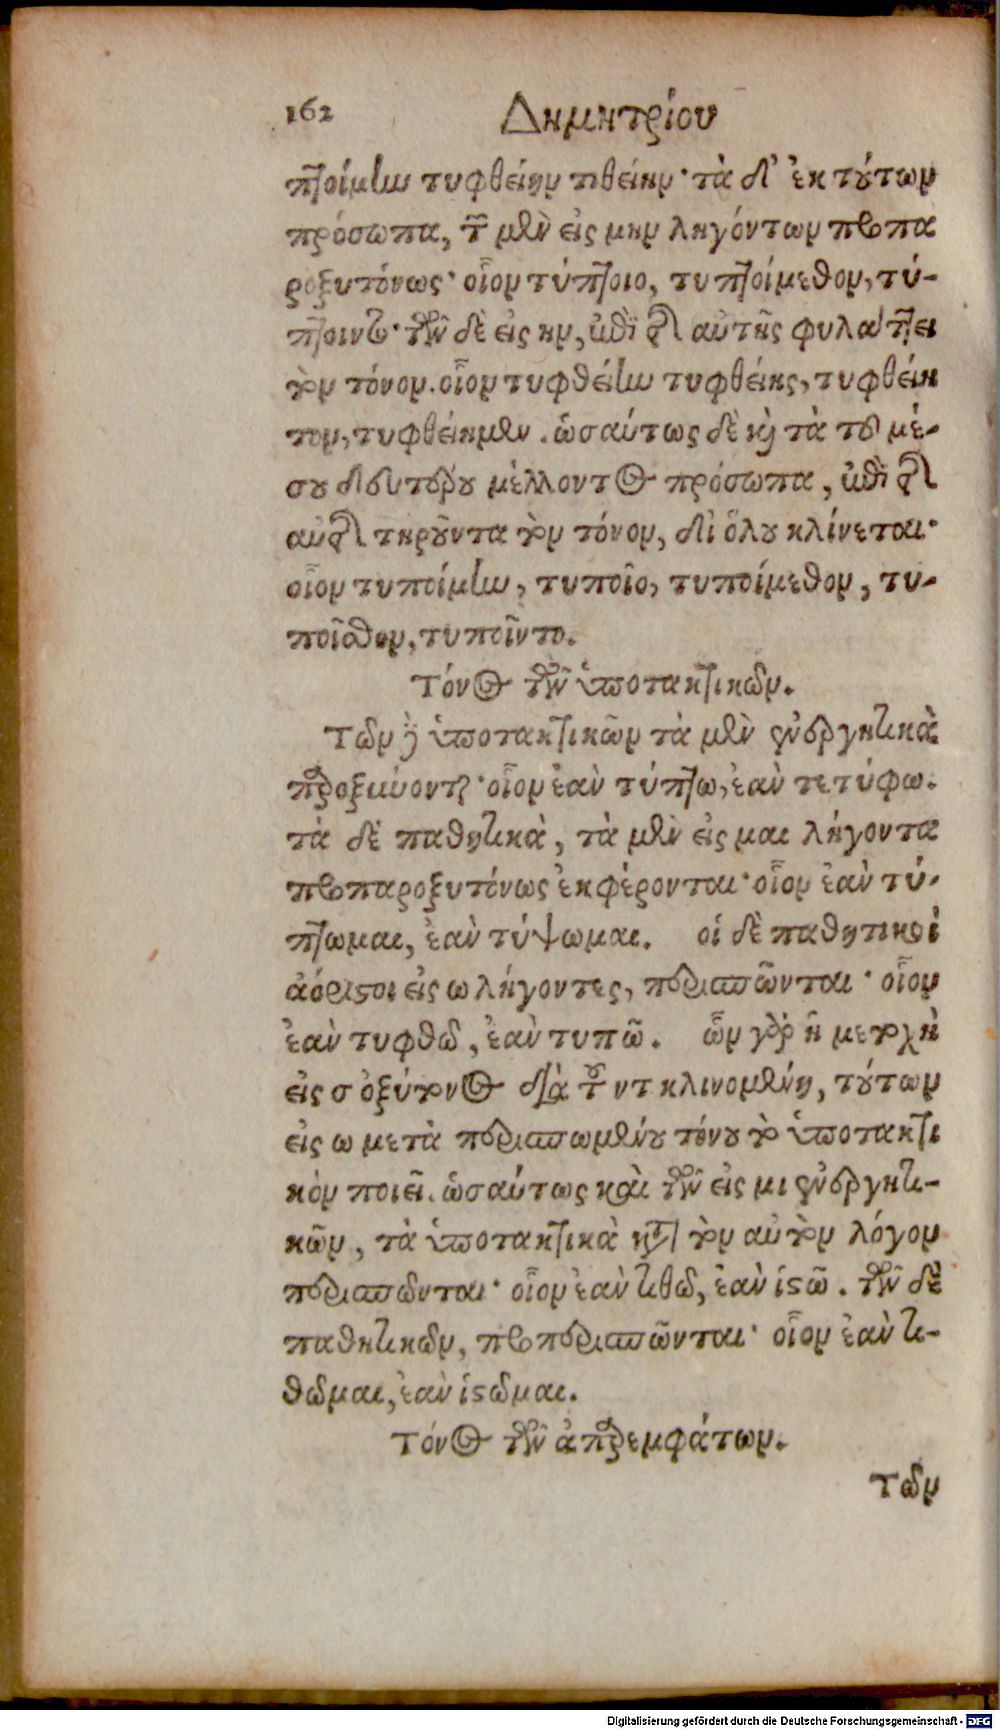 162 Δημητρίου
πτοίμην τυφθείην τιθείην· τὰ δ' ἐκ τούτων
πρόσωπα, τῶν μὲν εἰς μην ληγόντων προπα
ροξυτόνως· οἷον τύπτοιο, τυπτοίμεθον, τύ-
πτοιντο· τῶν δὲ εἰς ην, ἐπὶ τῆς αὐτῆς φυλάττει
τὸν τόνον. οἷον τυφθείην τυφθείης, τυφθείη
τον, τυφθείημεν. ὡσαύτως δὲ καὶ τὰ τοῦ μέ-
σου δευτέρου μέλλοντος πρόσωπα, ἐπὶ τῆς
αὐτῆς τηροῦντα τὸν τόνον, δι' ὅλου κλίνεται·
οἷον τυποίμην, τυποῖο, τυποίμεθον, τυ-
ποῖσθον, τυποῖντο.
Τόνος τῶν ὑποτακτικῶν.
Τῶν δὲ ὑποτακτικῶν τὰ μὲν ἐνεργητικὰ
παροξύνονται· οἷον ἐὰν τύπτω, ἐὰν τετύφω.
τὰ δὲ παθητικὰ, τὰ μὲν εἰς μαι λήγοντα
προπαροξυτόνως ἐκφέρονται· οἷον ἐὰν τύ-
πτωμαι, ἐὰν τύψωμαι. οἱ δὲ παθητικοὶ
ἀόριστοι εἰς ω λήγοντες, περισπῶνται· οἷον
ἐὰν τυφθῶ, ἐὰν τυπῶ. ὧν γὰρ ἡ μετοχὴ
εἰς σ ὀξύτονος διὰ τοῦ ντ κλινομένη, τούτων
εἰς ω μετὰ περισπωμένου τόνου τὸ ὑποτακτι
κὸν ποιεῖ. ὡσαύτως καὶ τῶν εἰς μι ἐνεργητι-
κῶν, τὰ ὑποτακτικὰ κατὰ τὸν αὐτὸν λόγον
περισπῶνται· οἷον ἐὰν τιθῶ, ἐὰν ἱστῶ. τῶν δὲ
παθητικῶν, προπερισπῶνται· οἷον ἐὰν τι-
θῶμαι, ἐὰν ἱστῶμαι.
Τόνος τῶν ἀπαρεμφάτων.
Τῶν
Digitalisierung gefördert durch die Deutsche Forschungsgemeinschaft - DFG